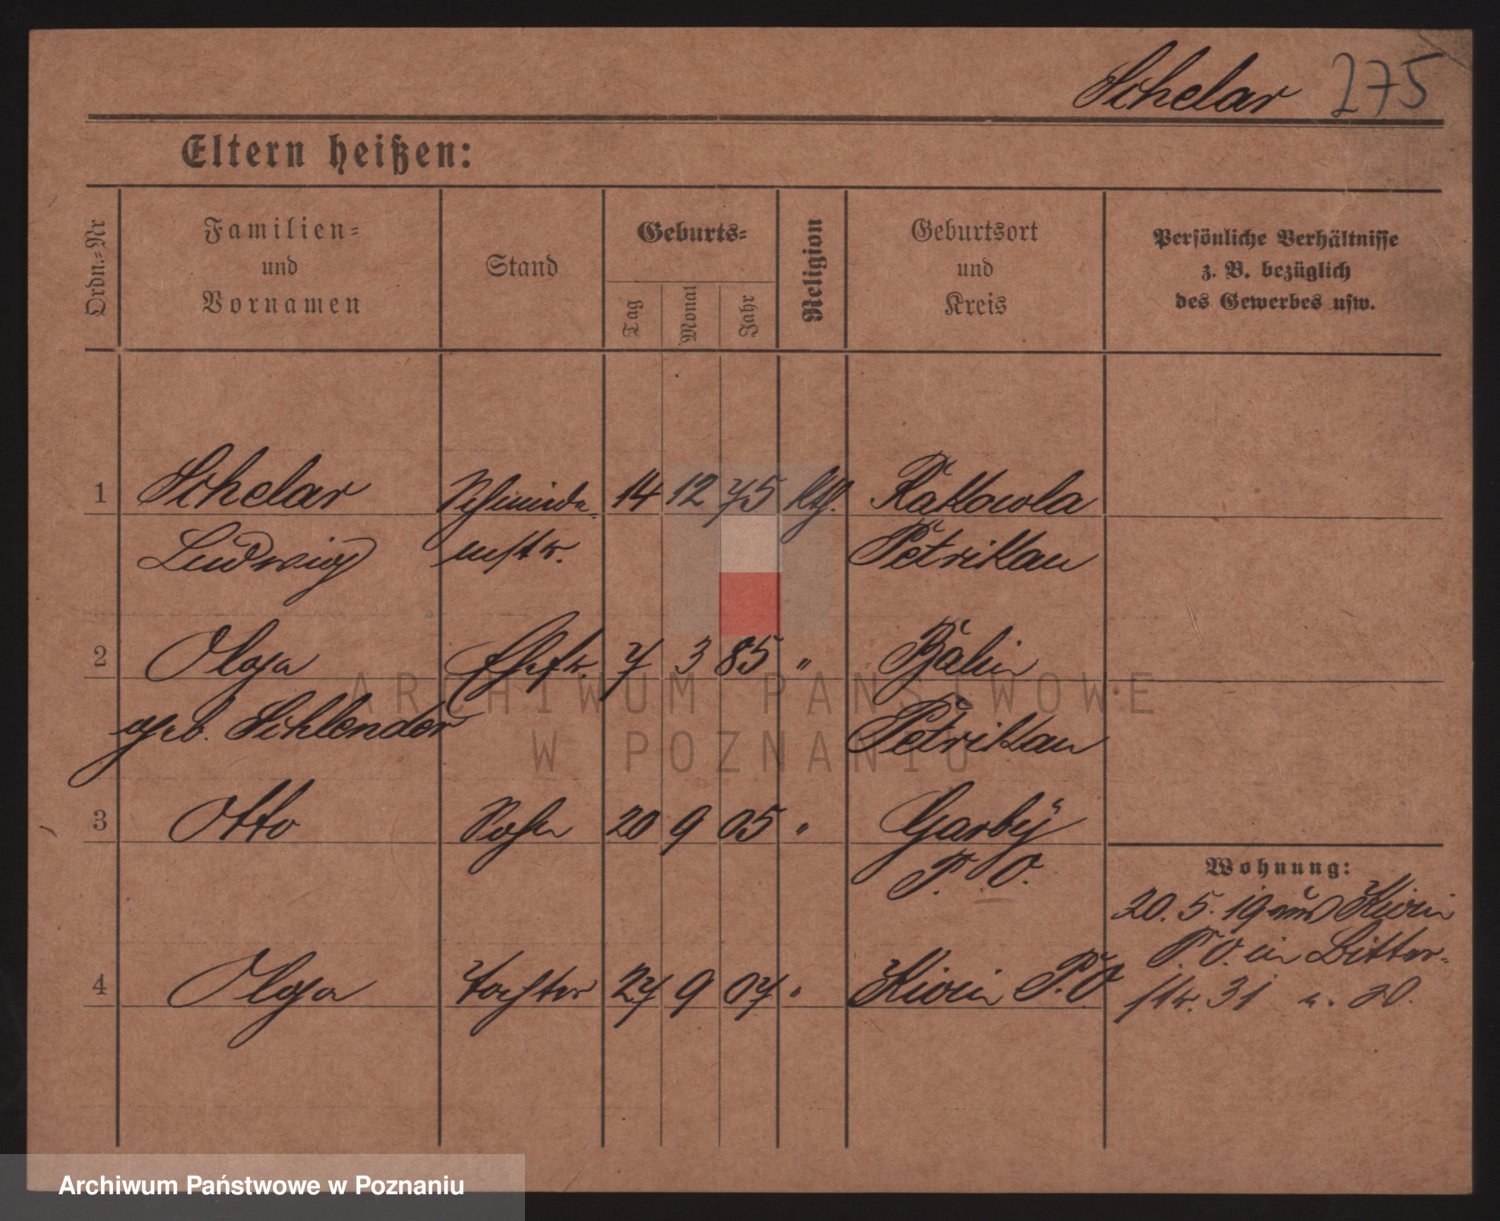 Schelar 275
Eltern heißen:
Ordn.-Nr
Familien-
und
Vornamen
Stand
Geburts-
Tag
Monat
Jahr
Religion
Geburtsort
und
Kreis
Persönliche Verhältnisse
z. B. bezüglich
des Gewerbes usw.
1 Schelar Schmiede- 14 12 75 kth.
Ludwig mstr. Petrikau
2 Olga Ehefr. 7 3 85 "
geb. Schlender Petrikau
3 Otto Sohn 20 9 05 " Garby
P. O.
4 Olga Tochter 27 9 07 " P.O
Wohnung:
20. 5. 19 aus
P. O. in Bitter-
str. 31 a. 20.
ARCHIWUM PAŃSTWOWE
W POZNANIU
Archiwum Państwowe w Poznaniu